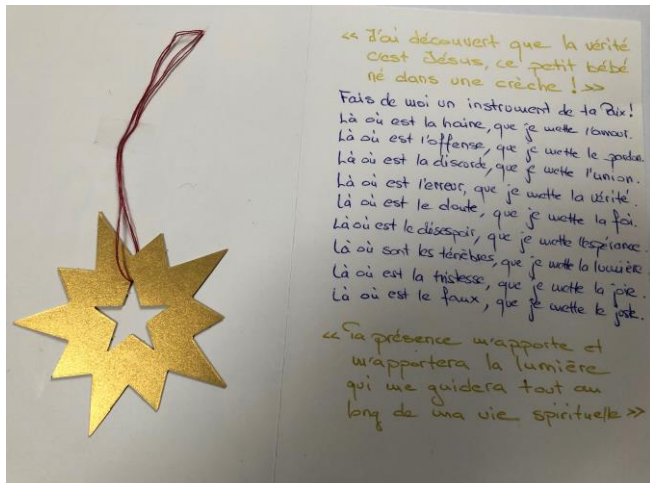 « J'ai découvert que la vérité
c'est Jésus, ce petit bébé
né dans une crèche ! »
Fais de moi un instrument de ta Paix !
Là où est la haine, que je mette l'amour.
Là où est l'offense, que je mette le pardon.
Là où est la discorde, que je mette l'union.
Là où est l'erreur, que je mette la vérité.
Là où est le doute, que je mette la foi.
Là où est le désespoir, que je mette l'espérance.
Là où sont les ténèbres, que je mette la lumière.
Là où est la tristesse, que je mette la joie.
Là où est le faux, que je mette le juste.
« Ta présence m'apporte et
m'apportera la lumière
qui me guidera tout au
long de ma vie spirituelle »